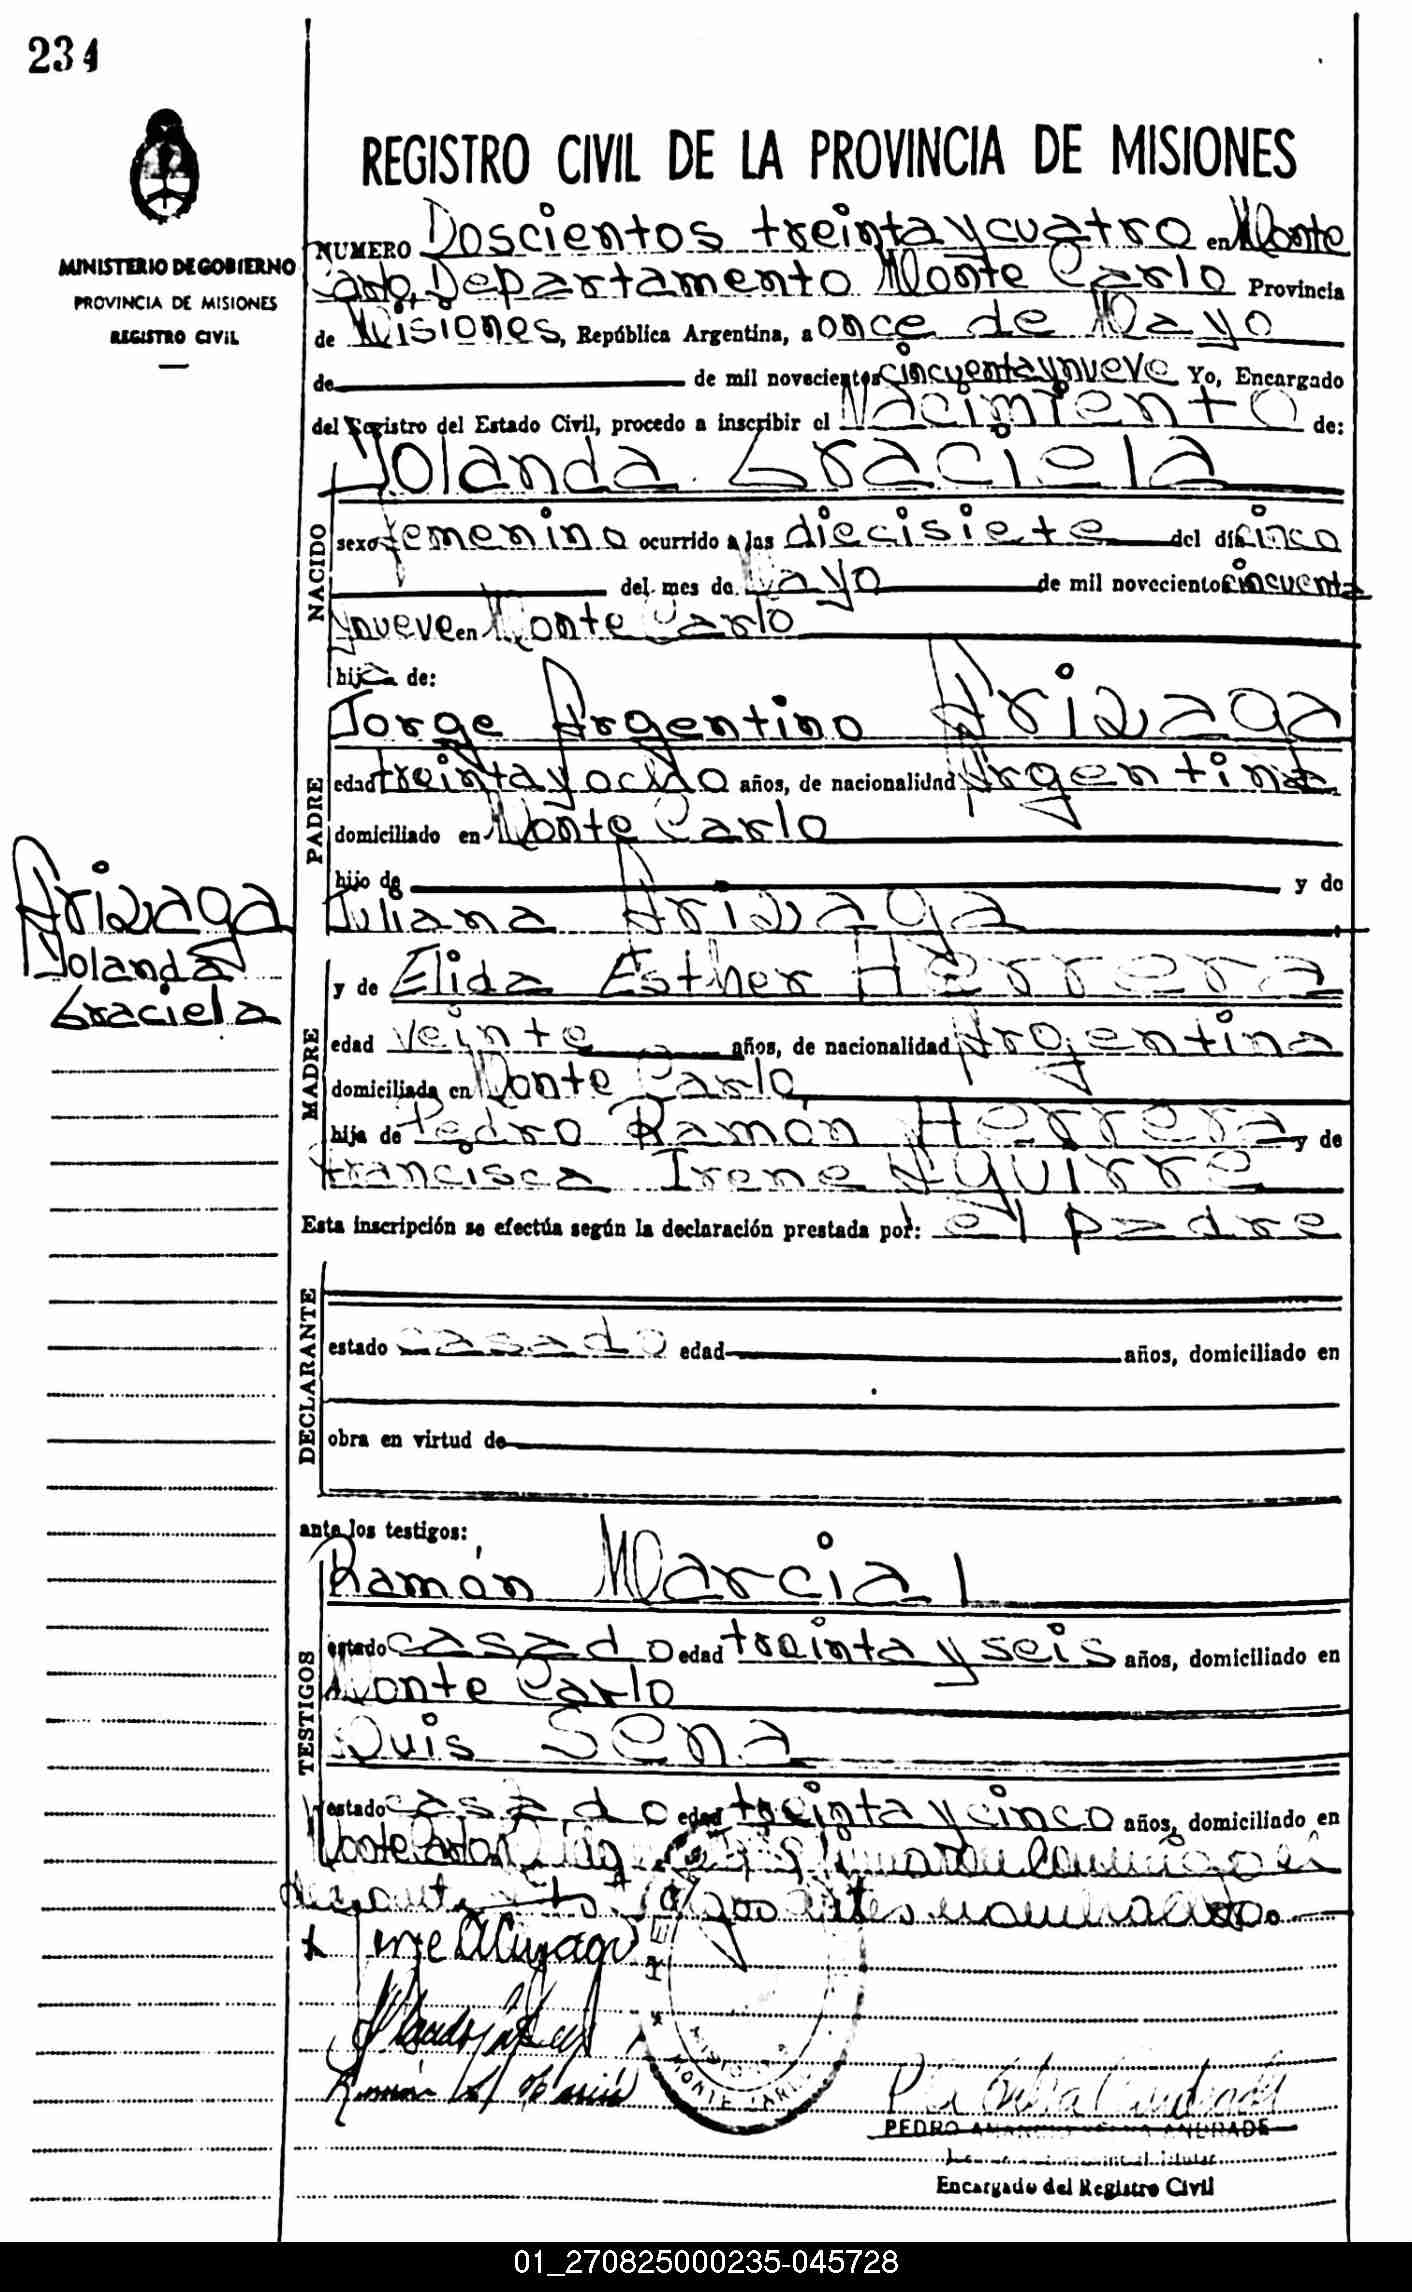 234
MINISTERIO DE GOBIERNO
PROVINCIA DE MISIONES
REGISTRO CIVIL
REGISTRO CIVIL DE LA PROVINCIA DE MISIONES
NUMERO Doscientos treinta y cuatro en Monte
Carlo, Departamento Monte Carlo Provincia
de Misiones, República Argentina, a once de Mayo
de de mil novecientos cincuenta y nueve Yo, Encargado
del Registro del Estado Civil, procedo a inscribir el Nacimiento de:
Yolanda Graciela
NACIDO
sexo femenino ocurrido a las diecisiete del día cinco
del mes de Mayo de mil novecientos cincuenta
y nueve en Monte Carlo
hija de:
Jorge Argentino Arizaga
PADRE
edad treinta y ocho años, de nacionalidad Argentina
domiciliado en Monte Carlo
hijo de y de
Juliana Arizaga
Arizaga
Yolanda
Graciela
MADRE
y de Elida Esther Herrera
edad veinte años, de nacionalidad Argentina
domiciliada en Monte Carlo
hija de Pedro Ramón Herrera y de
Francisca Irene Aguirre
Esta inscripción se efectúa según la declaración prestada por: el padre
DECLARANTE
estado casado edad años, domiciliado en
obra en virtud de
ante los testigos:
TESTIGOS
Ramón Marcial
estado casado edad treinta y seis años, domiciliado en
Monte Carlo
Luis Sena
estado casado edad treinta y cinco años, domiciliado en
Monte Carlo
antes
Jorge A Arizaga
Ramón
MISIONES
MONTE CARLO
PEDRO ANDRADE
Encargado del Registro Civil
01_270825000235-045728